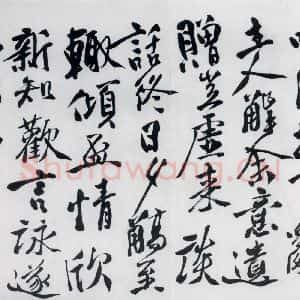 主人解余意遺
贈豈虛來談
話終日夕觴至
輒傾盃情欣
新知歡言詠遂
Shufawang.CN